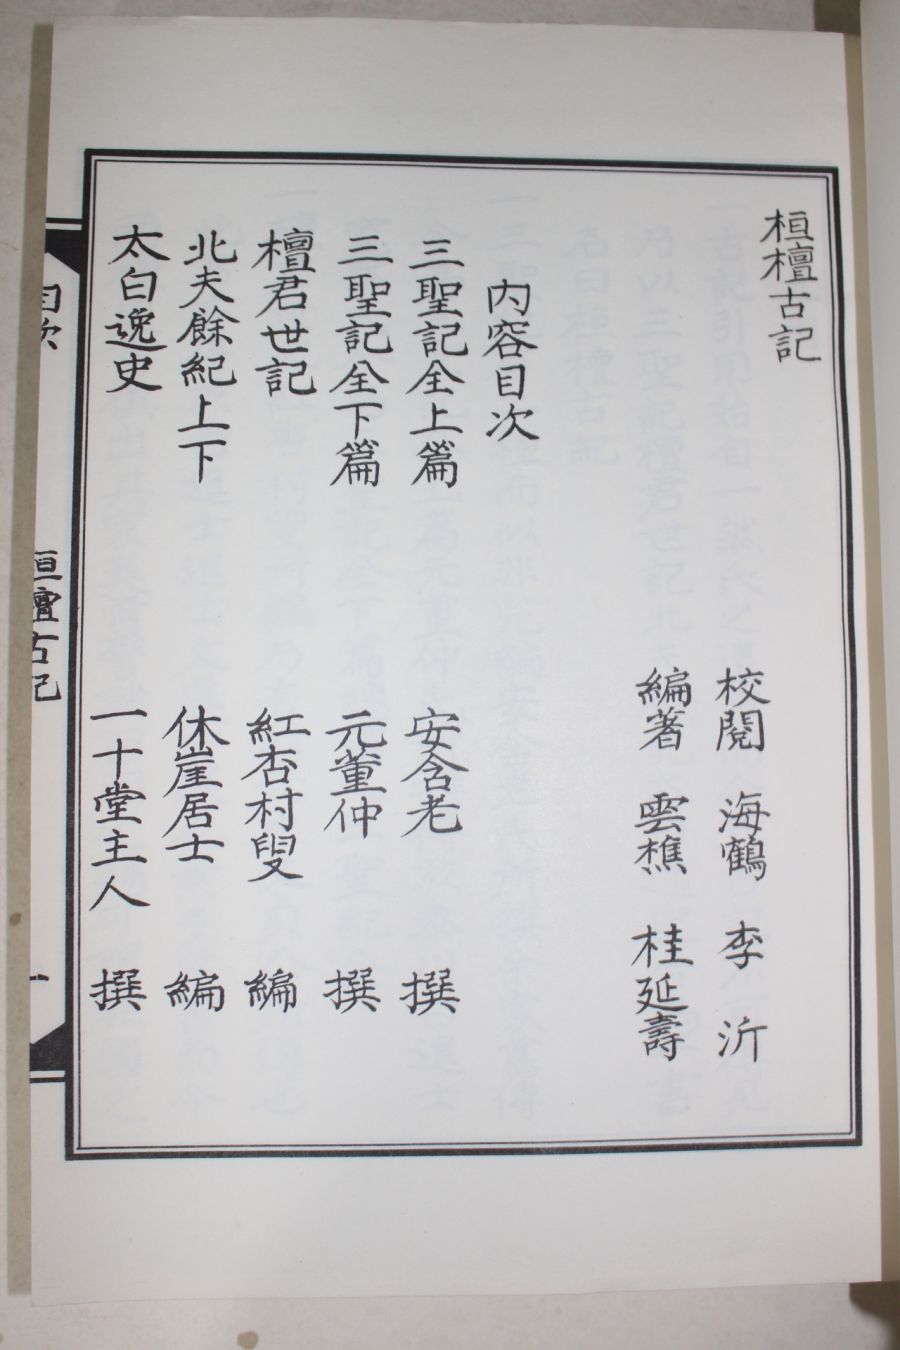 桓檀古記
校閱 海鶴 李 沂
編著 雲樵 桂延壽
內容目次
三聖記全上篇 安含老 撰
三聖記全下篇 元董仲 撰
檀君世記 紅杏村叟 編
北夫餘紀上下 休崖居士 編
太白逸史 一十堂主人 撰
目次
桓檀古記
一